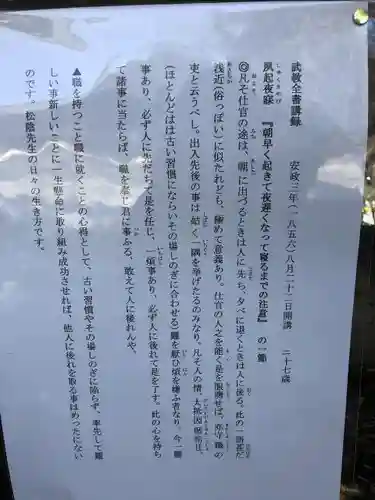 武教全書講録　安政三年(一八五六)八月二十二日開講　二十七歳
夙起夜寝　『朝早く起きて夜遅くなって寝るまでの注意』の一節
◎凡そ仕官の途は、朝に出づるときは人に先ち、夕べに退くときは人に後る。此の一語甚だ
浅近(俗っぽい)に似たれども、極めて意義あり。仕官の人之を能く是を服膺せば、
吏と云うべし。出入先後の事は姑く一隅を挙げたるのみなり。凡そ人の情、大抵因循苟且、
(ほとんどはは古い習慣にならいその場しのぎに合わせる)難を厭ひ煩を嫌ふ者なり。今一難
事あり、必ず人に先だちて是を任じ、一煩事あり、必ず人に後れて是を了す。此の心を持ち
て諸事に当たらば、職を奉じ君に事ふる、敢えて人に後れんや、
▲職を持つこと職に就くことの心得として、古い習慣やその場しのぎに陥らず、率先して難
しい事新しいことに一生懸命に取り組み成功させれば、他人に後れを取る事はめったにない
のです。松陰先生の日々の生き方です。